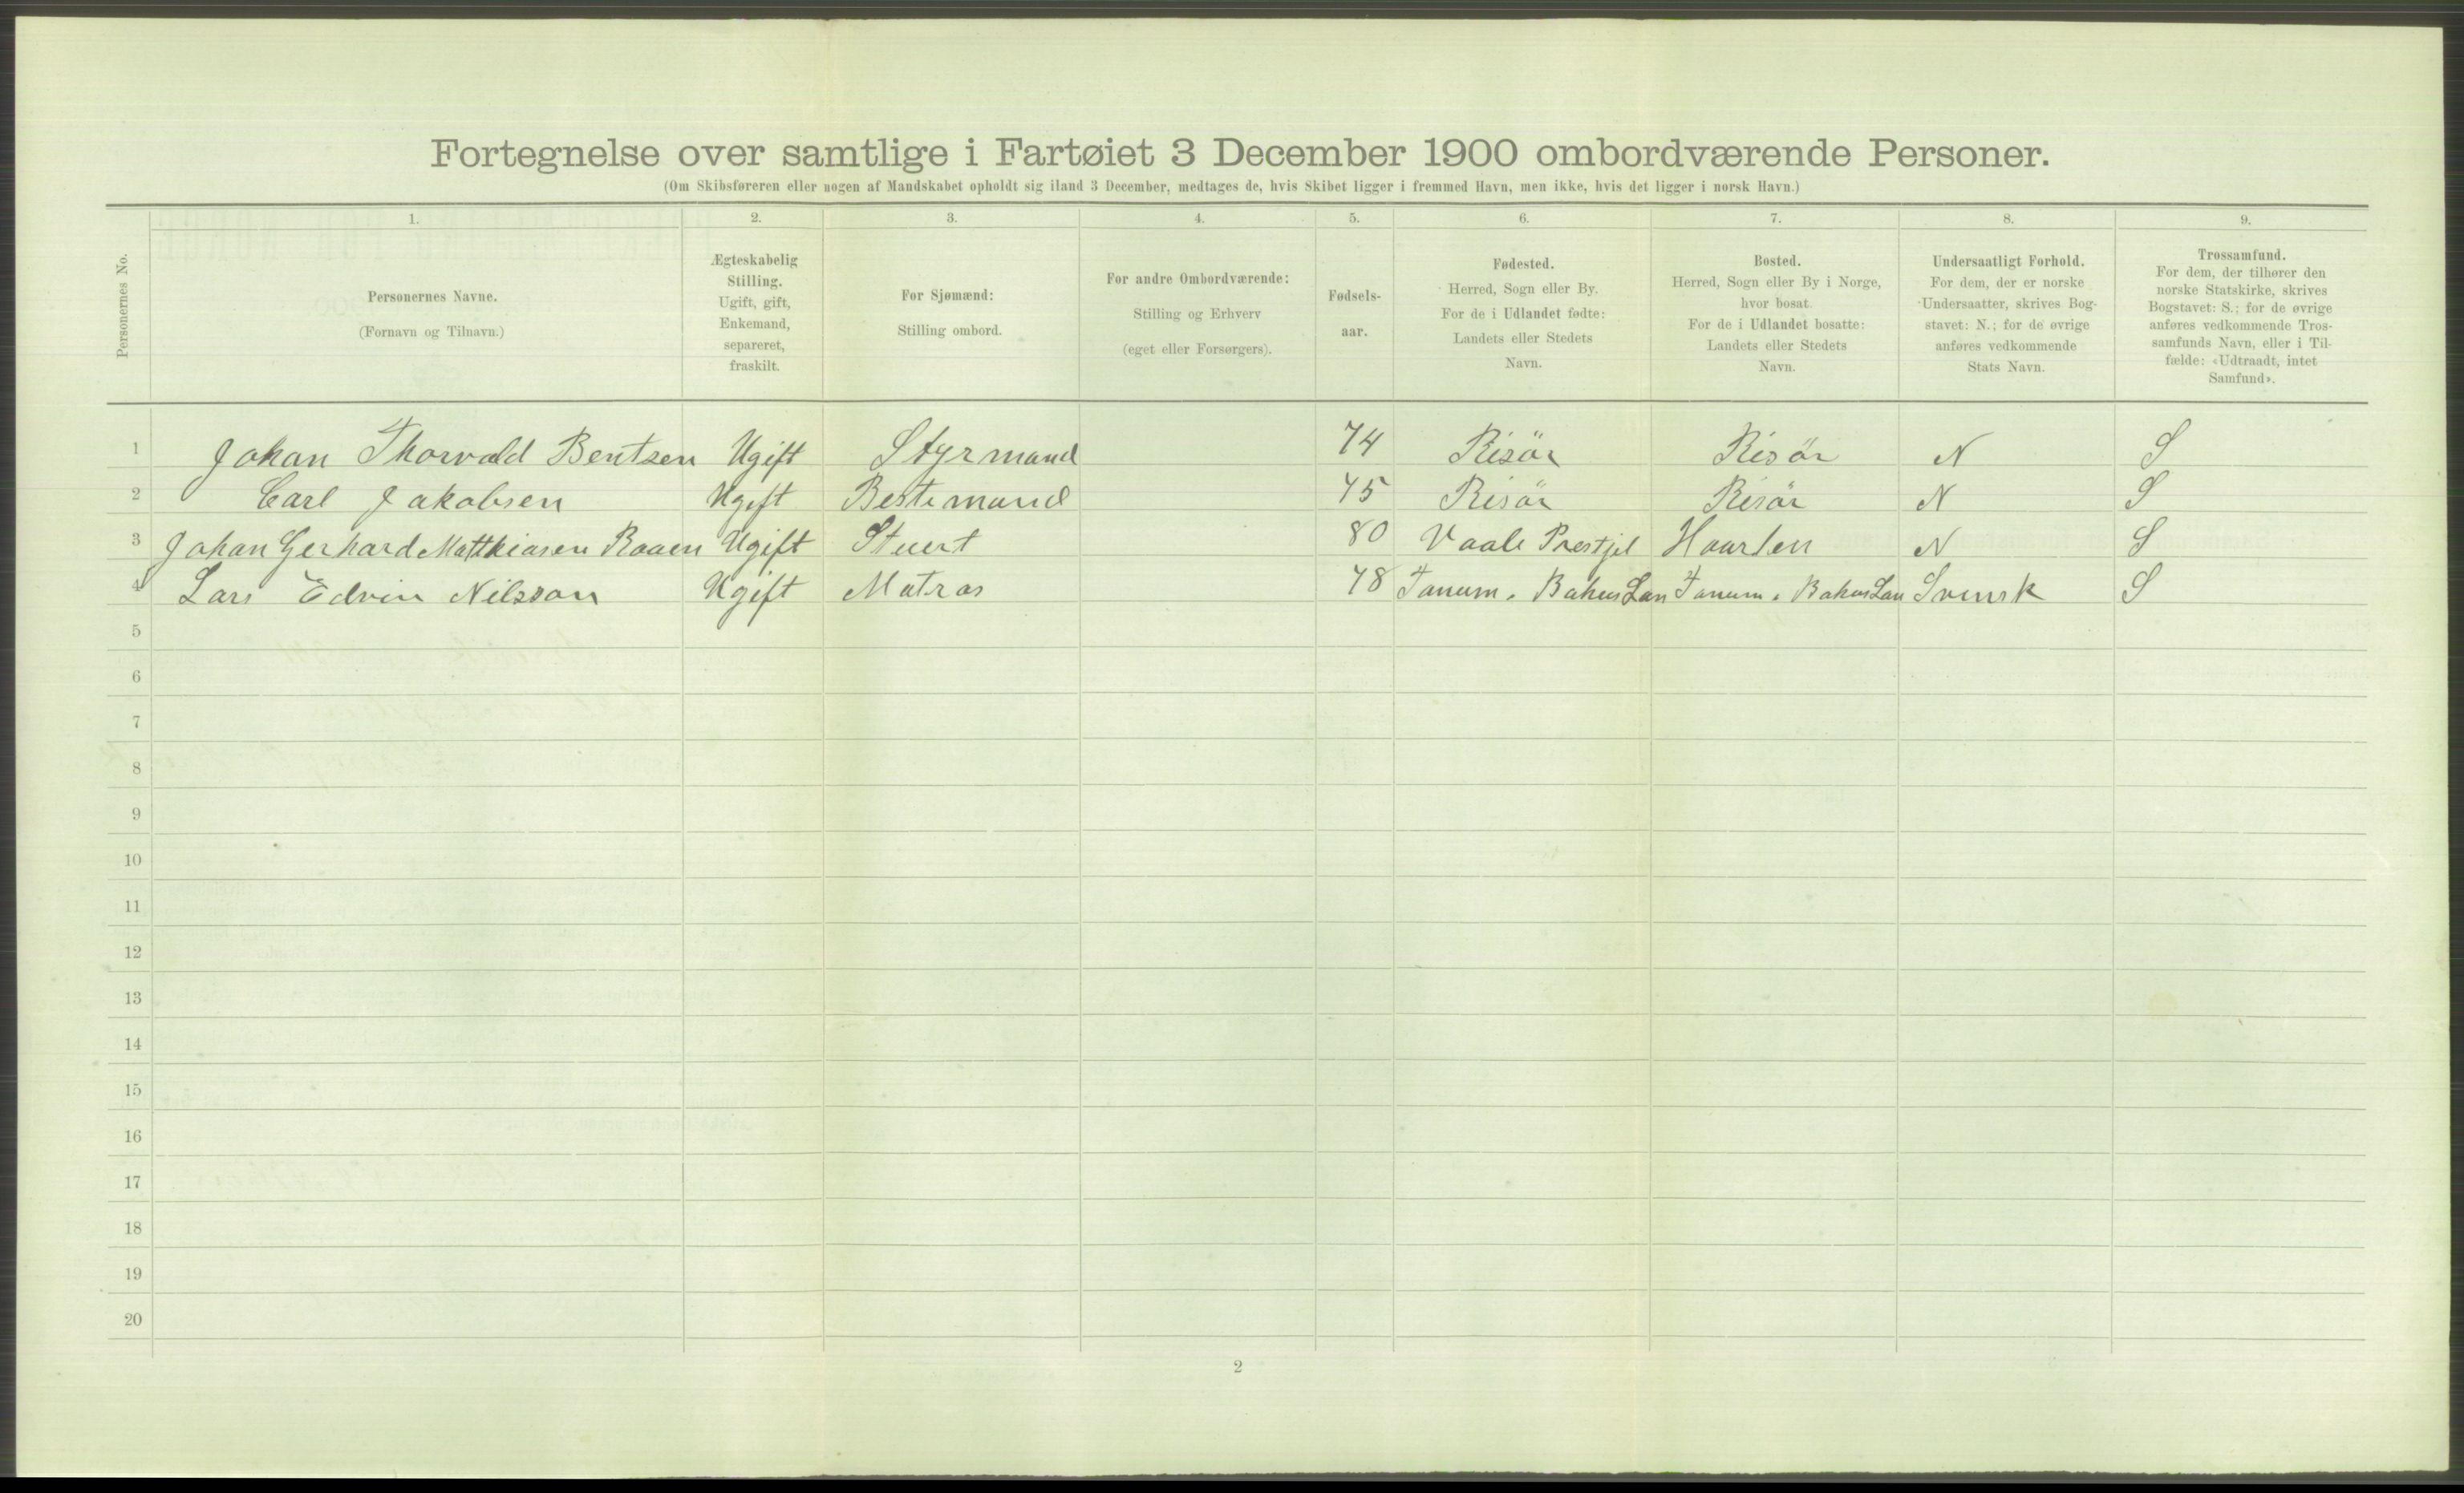 Fortegnelse over samtlige i Fartøiet 3 December 1900 ombordværende Personer.
(Om Skibsføreren eller nogen af Mandskabet opholdt sig iland 3 December, medtages de, hvis Skibet ligger i fremmed Havn, men ikke, hvis det ligger i norsk Havn.)
Personernes No.
1.
Personernes Navne.
(Fornavn og Tilnavn.)
2.
Ægteskabelig
Stilling.
Ugift, gift,
Enkemand,
separeret,
fraskilt.
3.
For Sjømænd:
Stilling ombord.
4.
For andre Ombordværende:
Stilling og Erhverv
(eget eller Forsørgers).
5.
Fødsels-
aar.
6.
Fødested.
Herred, Sogn eller By.
For de i Udlandet fødte:
Landets eller Stedets
Navn.
7.
Bosted.
Herred, Sogn eller By i Norge,
hvor bosat.
For de i Udlandet bosatte:
Landets eller Stedets
Navn.
8.
Undersaatligt Forhold.
For dem, der er norske
Undersaatter, skrives Bog-
stavet: N.; for de øvrige
anføres vedkommende
Stats Navn.
9.
Trossamfund.
For dem, der tilhører den
norske Statskirke, skrives
Bogstavet: S.; for de øvrige
anføres vedkommende Tros-
samfunds Navn, eller i Til-
fælde: «Udtraadt, intet
Samfund».
1 Johan Thorvald Bentsen Ugift Styrmand 74 Risör Risör N S
2 Carl Jakobsen Ugift Bestemand 75 Risör Risör N S
3 Johan Gerhard Matthiasen Raaen Ugift Stuert 80 Vaale Prestjel Haarten N S
4 Lars Edvin Nilsson Ugift Matros 78 Tanum. Bahus Lan Tanum. Bahus Lan Svensk S
5
6
7
8
9
10
11
12
13
14
15
16
17
18
19
20
2